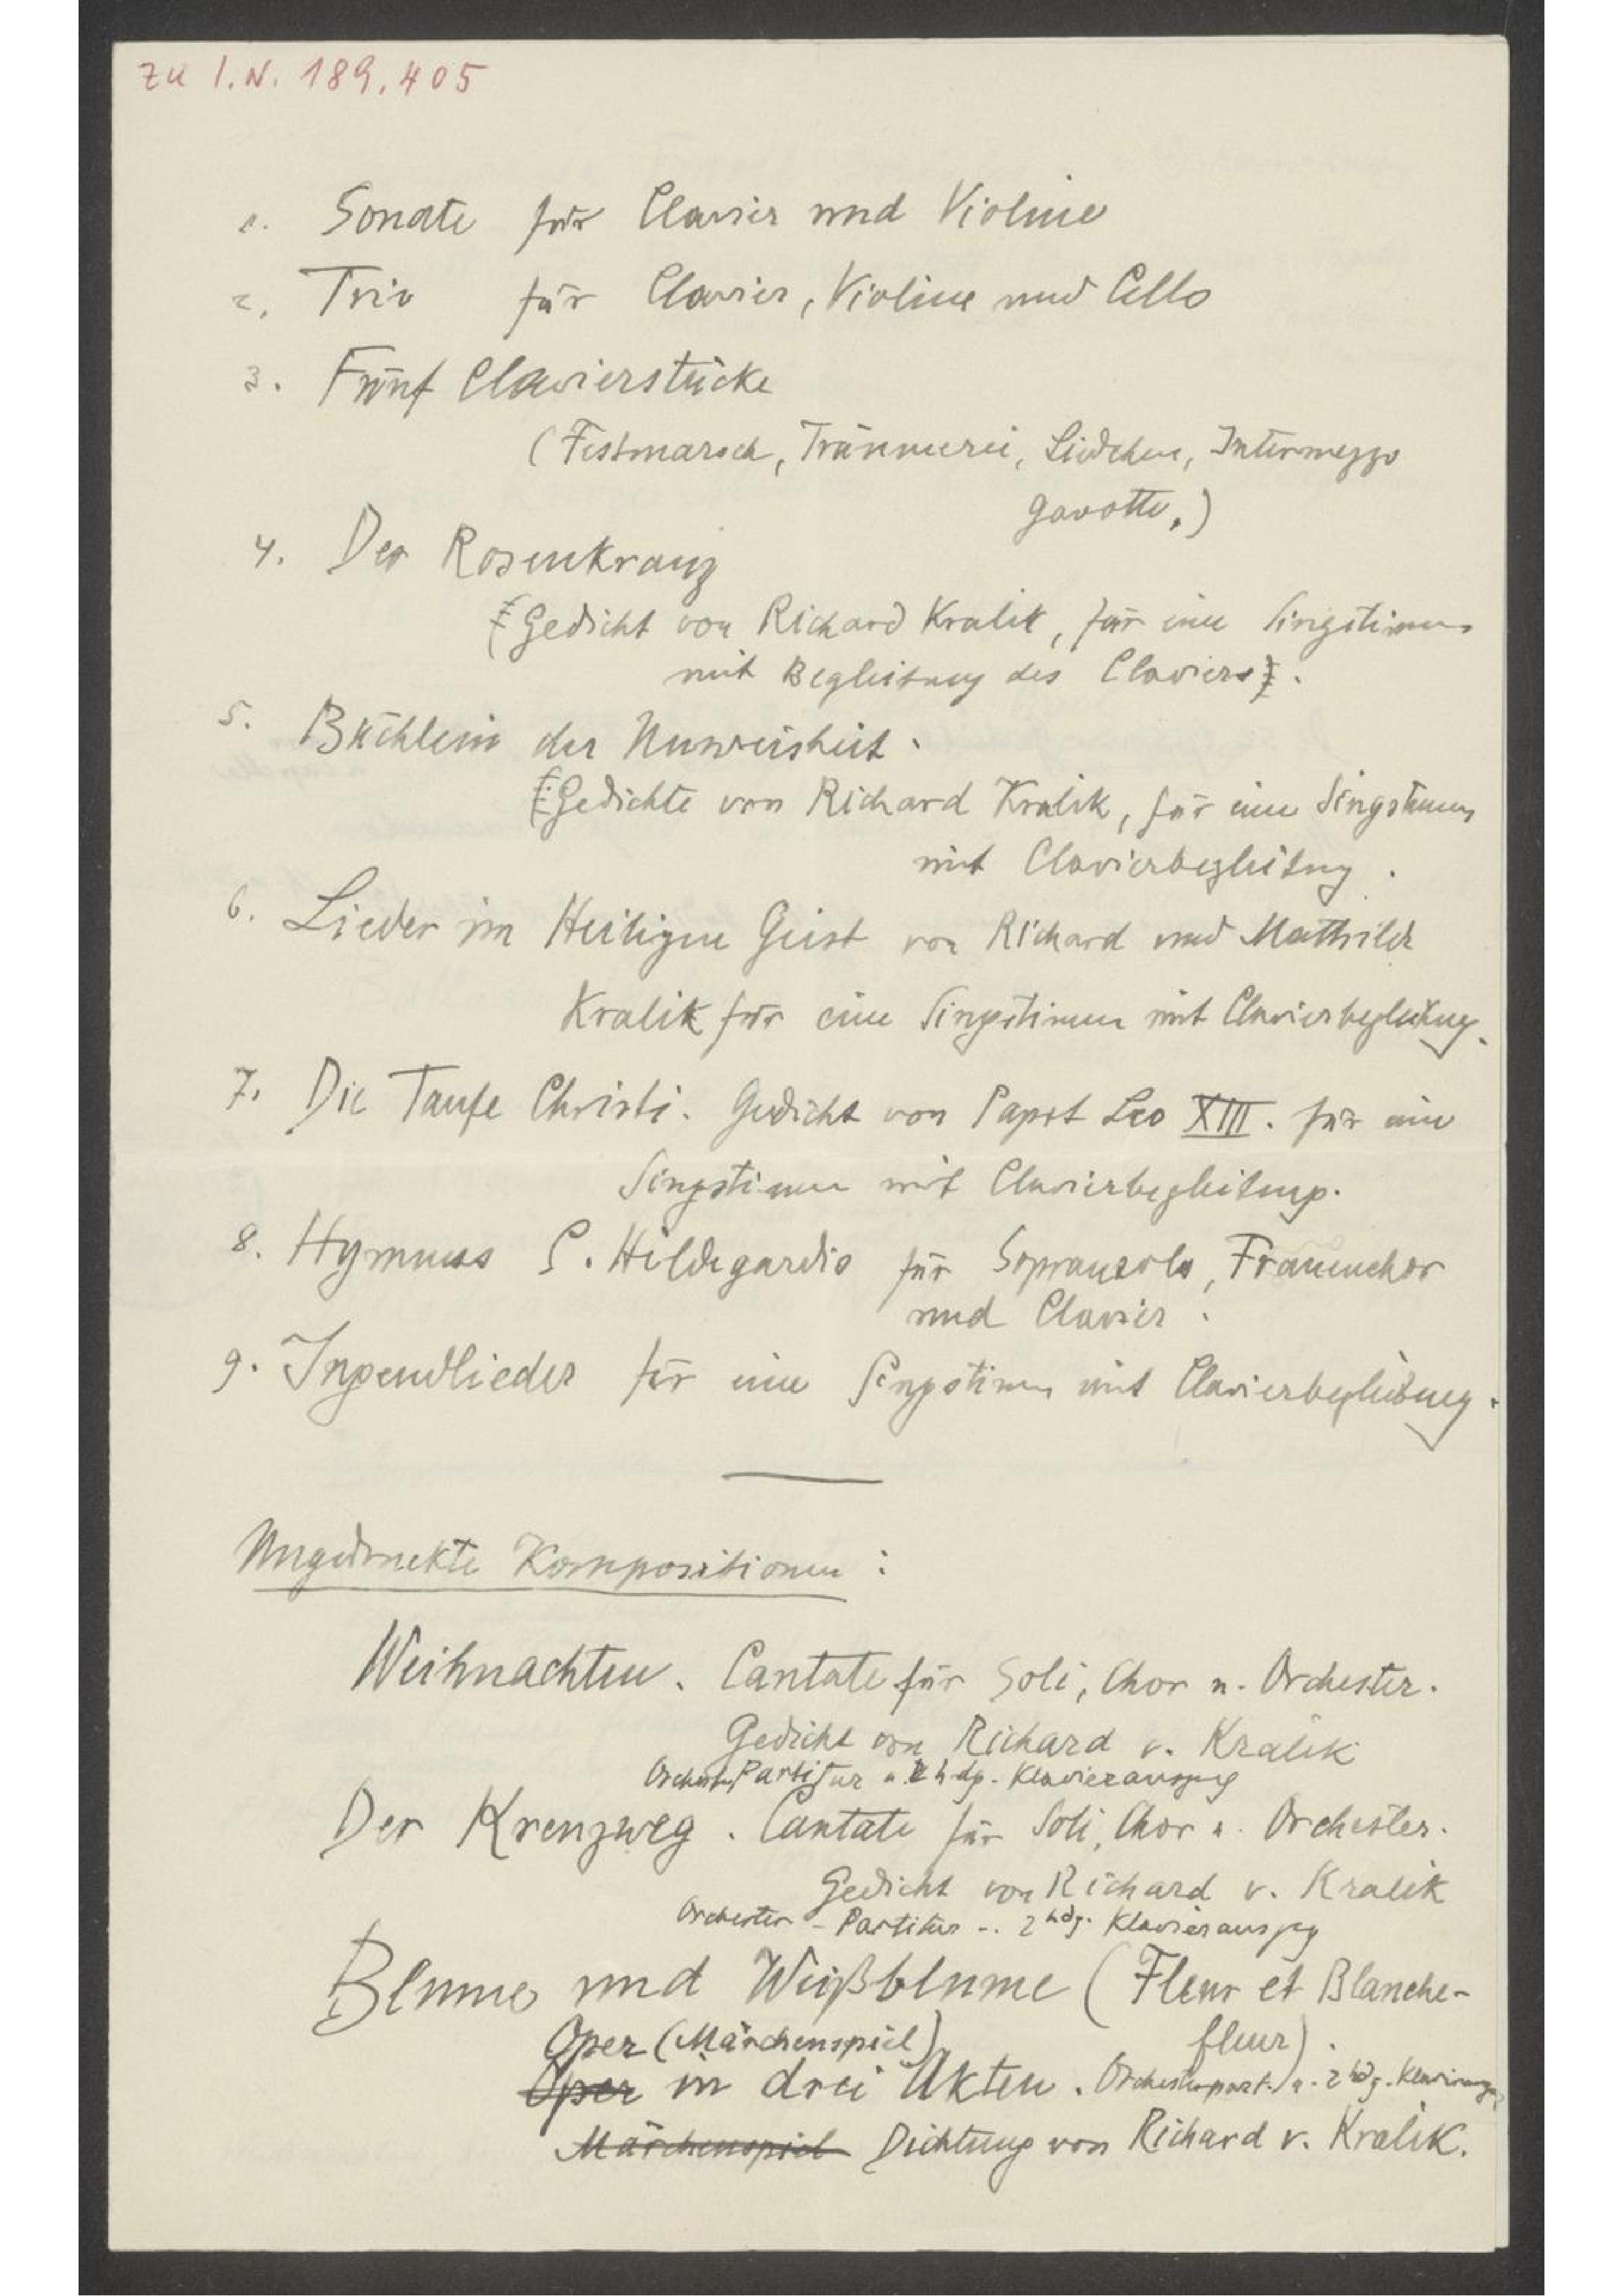 zu I.N. 189.405
1. Sonate für Clavier und Violine
2. Trio für Clavier, Violine und Cello
3. Fünf Clavierstücke
(Festmarsch, Träumerei, Liedchen, Intermezzo
Gavotte.)
4. Der Rosenkranz
(Gedicht von Richard Kralik, für eine Singstimme
mit Begleitung des Claviers).
5. Büchlein der Unweisheit.
(Gedichte von Richard Kralik, für eine Singstimme
mit Clavierbegleitung.
6. Lieder im Heiligen Geist von Richard und Mathilde
Kralik für eine Singstimme mit Clavierbegleitung.
7. Die Taufe Christi. Gedicht von Papst Leo XIII. für eine
Singstimme mit Clavierbegleitung.
8. Hymnus S. Hildegardis für Sopransolo, Frauenchor
und Clavier.
9. Jugendlieder für eine Singstimme mit Clavierbegleitung.
Ungedruckte Kompositionen:
Weihnachten. Cantate für Soli, Chor u. Orchester.
Gedicht von Richard v. Kralik
Orchest. Partitur u. 2 hdg. Klavierauszug
Der Kreuzweg. Cantate für Soli, Chor u. Orchester.
Gedicht von Richard v. Kralik
Orchester-Partitur u. 2 hdg. Klavierauszug
Blume und Weißblume (Fleur et Blanche-
fleur).
Oper (Märchenspiel)
Oper in drei Akten. Orchesterpart. u. 2 hdg. Klavierauszug
Märchenspiel Dichtung von Richard v. Kralik.